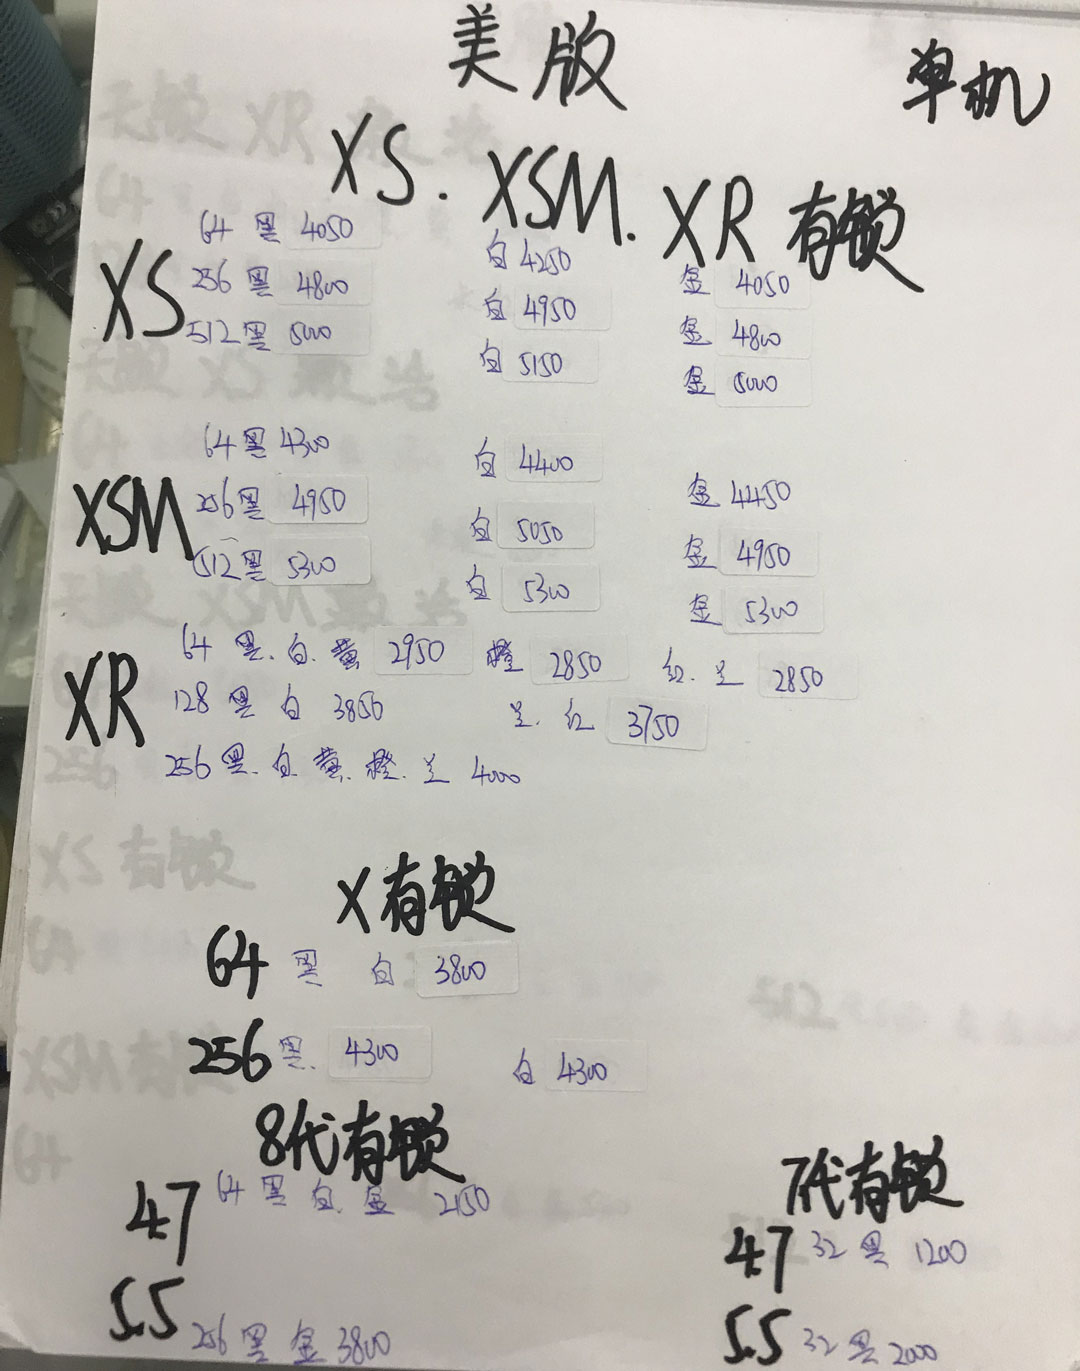 美版
单机
XS. XSM. XR 有锁
XS
64 黑 4050 白 4250 金 4050
256 黑 4800 白 4950 金 4800
512 黑 5000 白 5150 金 5000
XSM
64 黑 4300 白 4400 金 4450
256 黑 4950 白 5050 金 4950
512 黑 5300 白 5300 金 5300
XR
64 黑.白.黄 2950 橙 2850 红.兰 2850
128 黑 白 3850 兰.红 3750
256 黑.白.黄.橙.兰 4000
X有锁
64 黑 白 3800
256 黑. 4300 白 4300
8代有锁
4.7 64 黑 白. 金 2150
5.5 256 黑 金 3800
7代有锁
4.7 32 黑 1200
5.5 32 黑 2000
无锁 XR
64
无锁 XS
64
无锁 XSM
256
XS 有锁
64
XSM 有锁
64
512